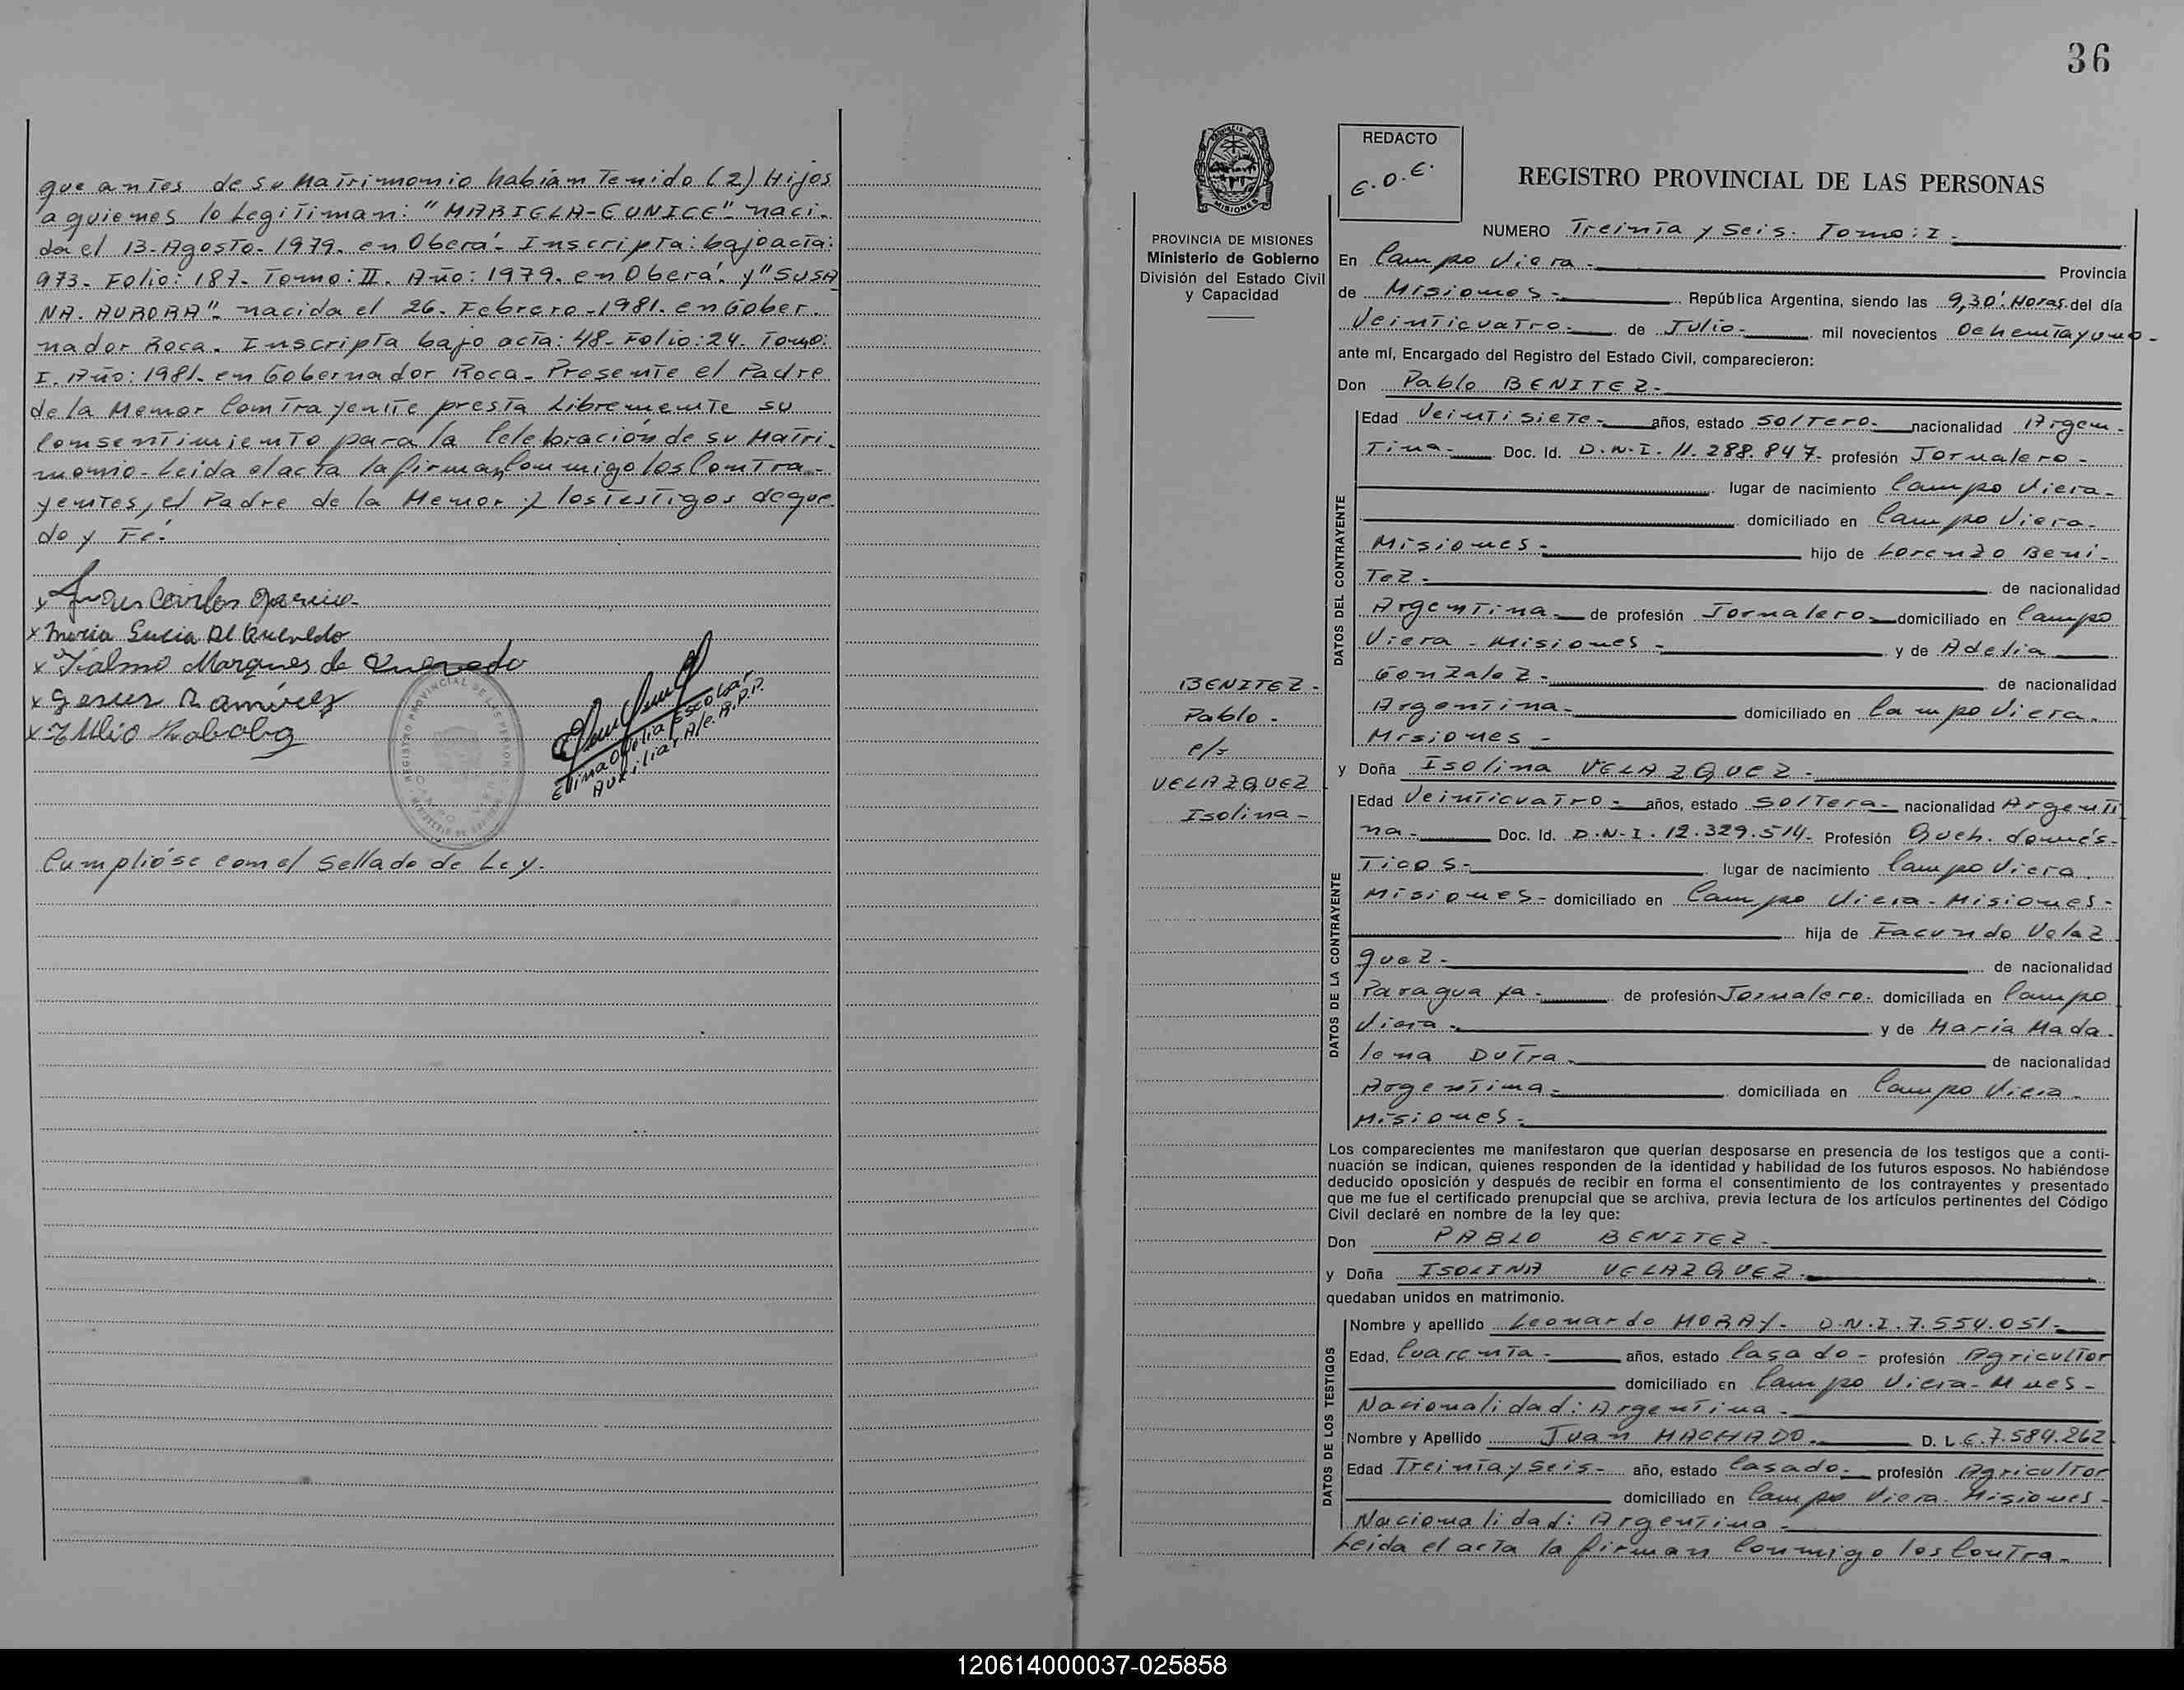 que antes de su Matrimonio habían Tenido (2) Hijos
a quienes lo Legitiman: "MARIELA-EUNICE"- naci-
da el 13-Agosto-1979- en Oberá- Inscripta: bajo acta:
973- Folio: 187- Tomo: II. Año: 1979. en Oberá. y "SUSA
NA. AURORA"- nacida el 26- Febrero-1981- en Gober-
nador Roca- Inscripta bajo acta: 48- Folio: 24. Tomo:
I. Año: 1981. en Gobernador Roca- Presente el Padre
de la Menor Contrayente presta Libremente su
Consentimiento para la Celebración de su Matri-
monio- Leida el acta la firman conmigo los Contra-
yentes, el Padre de la Menor y los testigos de que
doy Fé.
x Juan Carlos
x Maria Lucia De Quevedo
x Marques de Quevedo
x Jesus Ramirez
x Julio
Elina Ofelia Escobar
Auxiliar A/c. R.P.P.
REGISTRO PROVINCIAL DE LAS PERSONAS
Cumplióse con el Sellado de Ley.
36
REDACTO
E.O.E.
MISIONES
REGISTRO PROVINCIAL DE LAS PERSONAS
PROVINCIA DE MISIONES
Ministerio de Gobierno
División del Estado Civil
y Capacidad
BENITEZ-
Pablo-
c/:
VELAZQUEZ
Isolina-
NUMERO Treinta y Seis. Tomo: I-
En Campo Viera- Provincia
de Misiones- República Argentina, siendo las 9,30' Horas. del día
Veinticuatro- de Julio- mil novecientos Ochenta y uno-
ante mí, Encargado del Registro del Estado Civil, comparecieron:
Don Pablo BENITEZ-
DATOS DEL CONTRAYENTE
Edad Veintisiete- años, estado Soltero- nacionalidad Argen-
tina- Doc. Id. D.N.I. 11.288.847- profesión Jornalero-
lugar de nacimiento Campo Viera-
domiciliado en Campo Viera-
Misiones- hijo de Lorenzo Beni-
tez- de nacionalidad
Argentina- de profesión Jornalero- domiciliado en Campo
Viera- Misiones- y de Adelia
Gonzalez- de nacionalidad
Argentina- domiciliado en Campo Viera.
Misiones-
y Doña Isolina VELAZQUEZ-
DATOS DE LA CONTRAYENTE
Edad Veinticuatro- años, estado Soltera- nacionalidad Argenti
na- Doc. Id. D.N.I. 12.329.514- Profesión Queh. domés-
ticos- lugar de nacimiento Campo Viera.
Misiones- domiciliado en Campo Viera- Misiones-
hija de Facundo Velaz
quez- de nacionalidad
Paraguaya- de profesión Jornalero- domiciliada en Campo
Viera- y de María Mada-
lena Dutra- de nacionalidad
Argentina- domiciliada en Campo Viera-
Misiones-
Los comparecientes me manifestaron que querían desposarse en presencia de los testigos que a conti-
nuación se indican, quienes responden de la identidad y habilidad de los futuros esposos. No habiéndose
deducido oposición y después de recibir en forma el consentimiento de los contrayentes y presentado
que me fue el certificado prenupcial que se archiva, previa lectura de los artículos pertinentes del Código
Civil declaré en nombre de la ley que:
Don PABLO BENITEZ-
y Doña ISOLINA VELAZQUEZ-
quedaban unidos en matrimonio.
DATOS DE LOS TESTIGOS
Nombre y apellido Leonardo MORAY- D.N.I. 7.554.051-
Edad, Cuarenta- años, estado Casado- profesión Agricultor
domiciliado en Campo Viera- Mnes-
Nacionalidad: Argentina-
Nombre y Apellido Juan MACHADO- D. L.E. 7.584.262
Edad Treinta y Seis- año, estado Casado- profesión Agricultor
domiciliado en Campo Viera- Misiones-
Nacionalidad: Argentina-
Leida el acta la firman Conmigo los Contra-
120614000037-025858